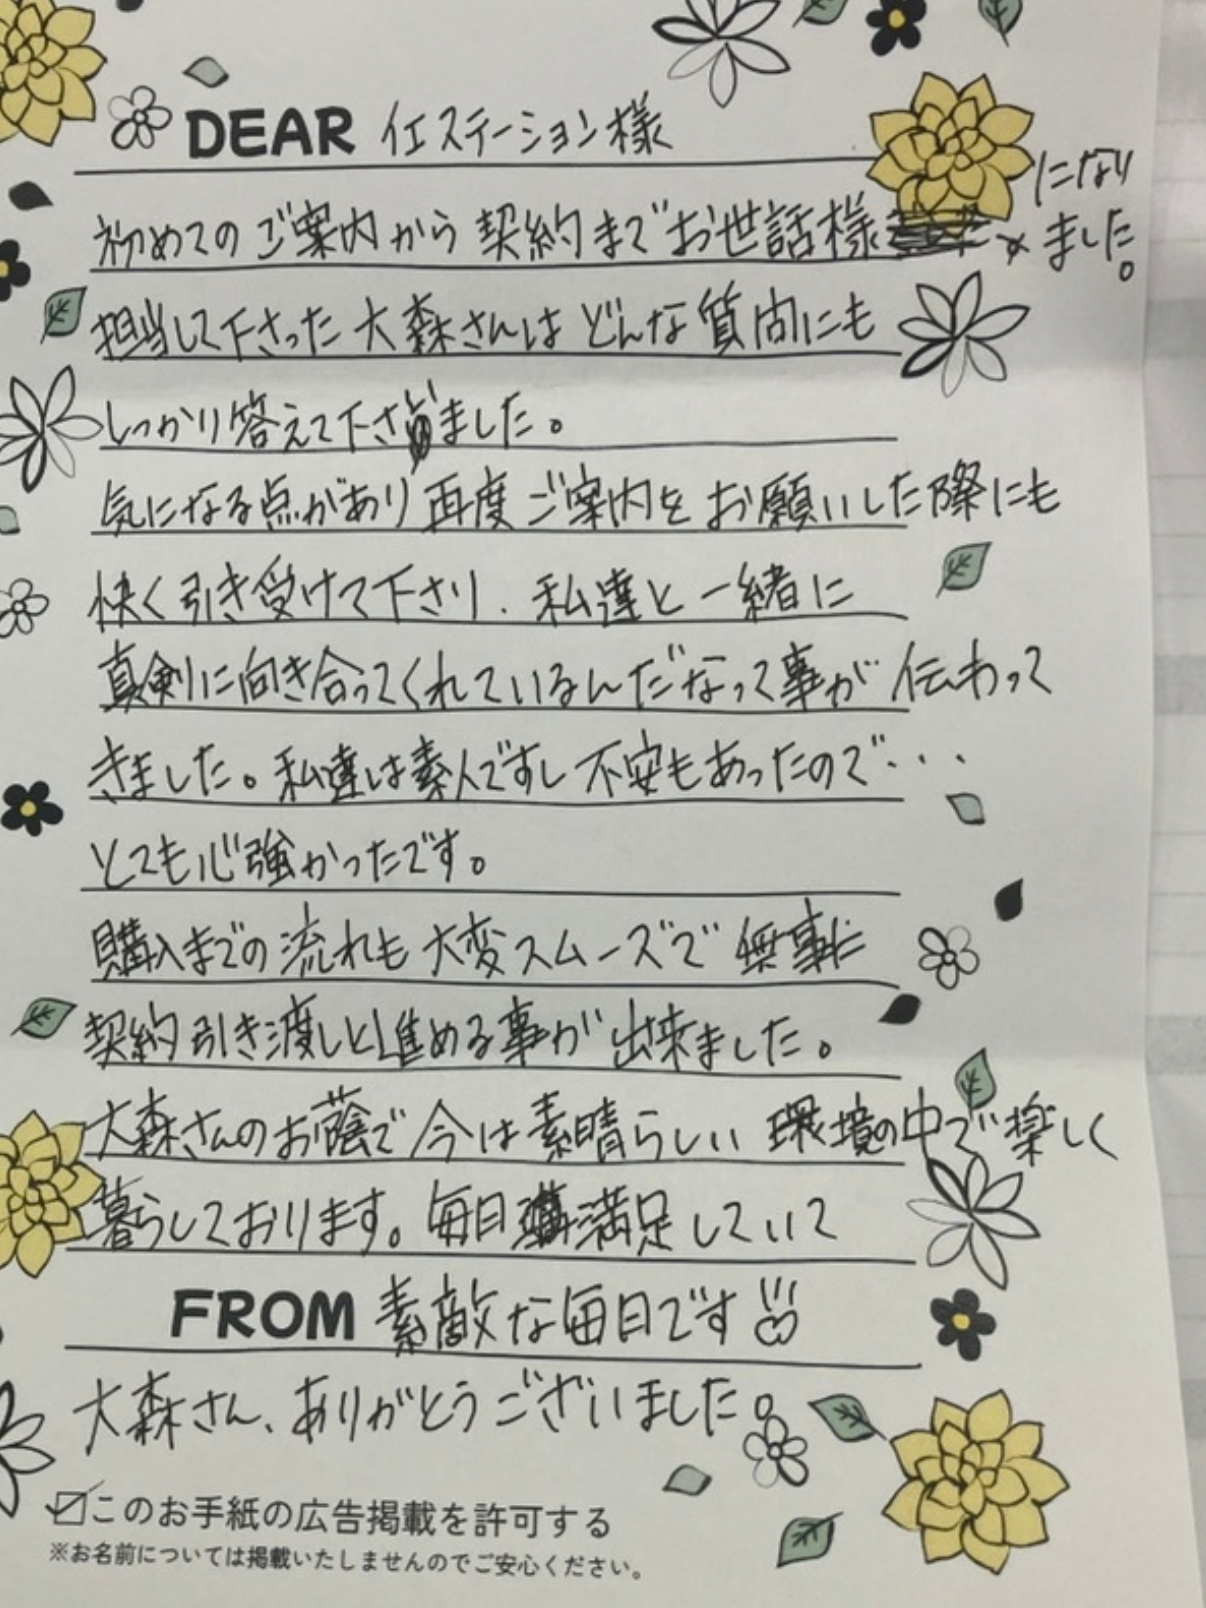 DEAR イエステーション様
初めてのご案内から契約までお世話様になりました。
担当して下さった大森さんはどんな質問にも
しっかり答えて下さいました。
気になる点があり再度ご案内をお願いした際にも
快く引き受けて下さり、私達と一緒に
真剣に向き合ってくれているんだなって事が伝わって
きました。私達は素人ですし不安もあったので・・・
とても心強かったです。
購入までの流れも大変スムーズで無事に
契約引き渡しと進める事が出来ました。
大森さんのお蔭で今は素晴らしい環境の中で楽しく
暮らしております。毎日満足していて
FROM 素敵な毎日です
大森さん、ありがとうございました。
☑このお手紙の広告掲載を許可する
※お名前については掲載いたしませんのでご安心ください。